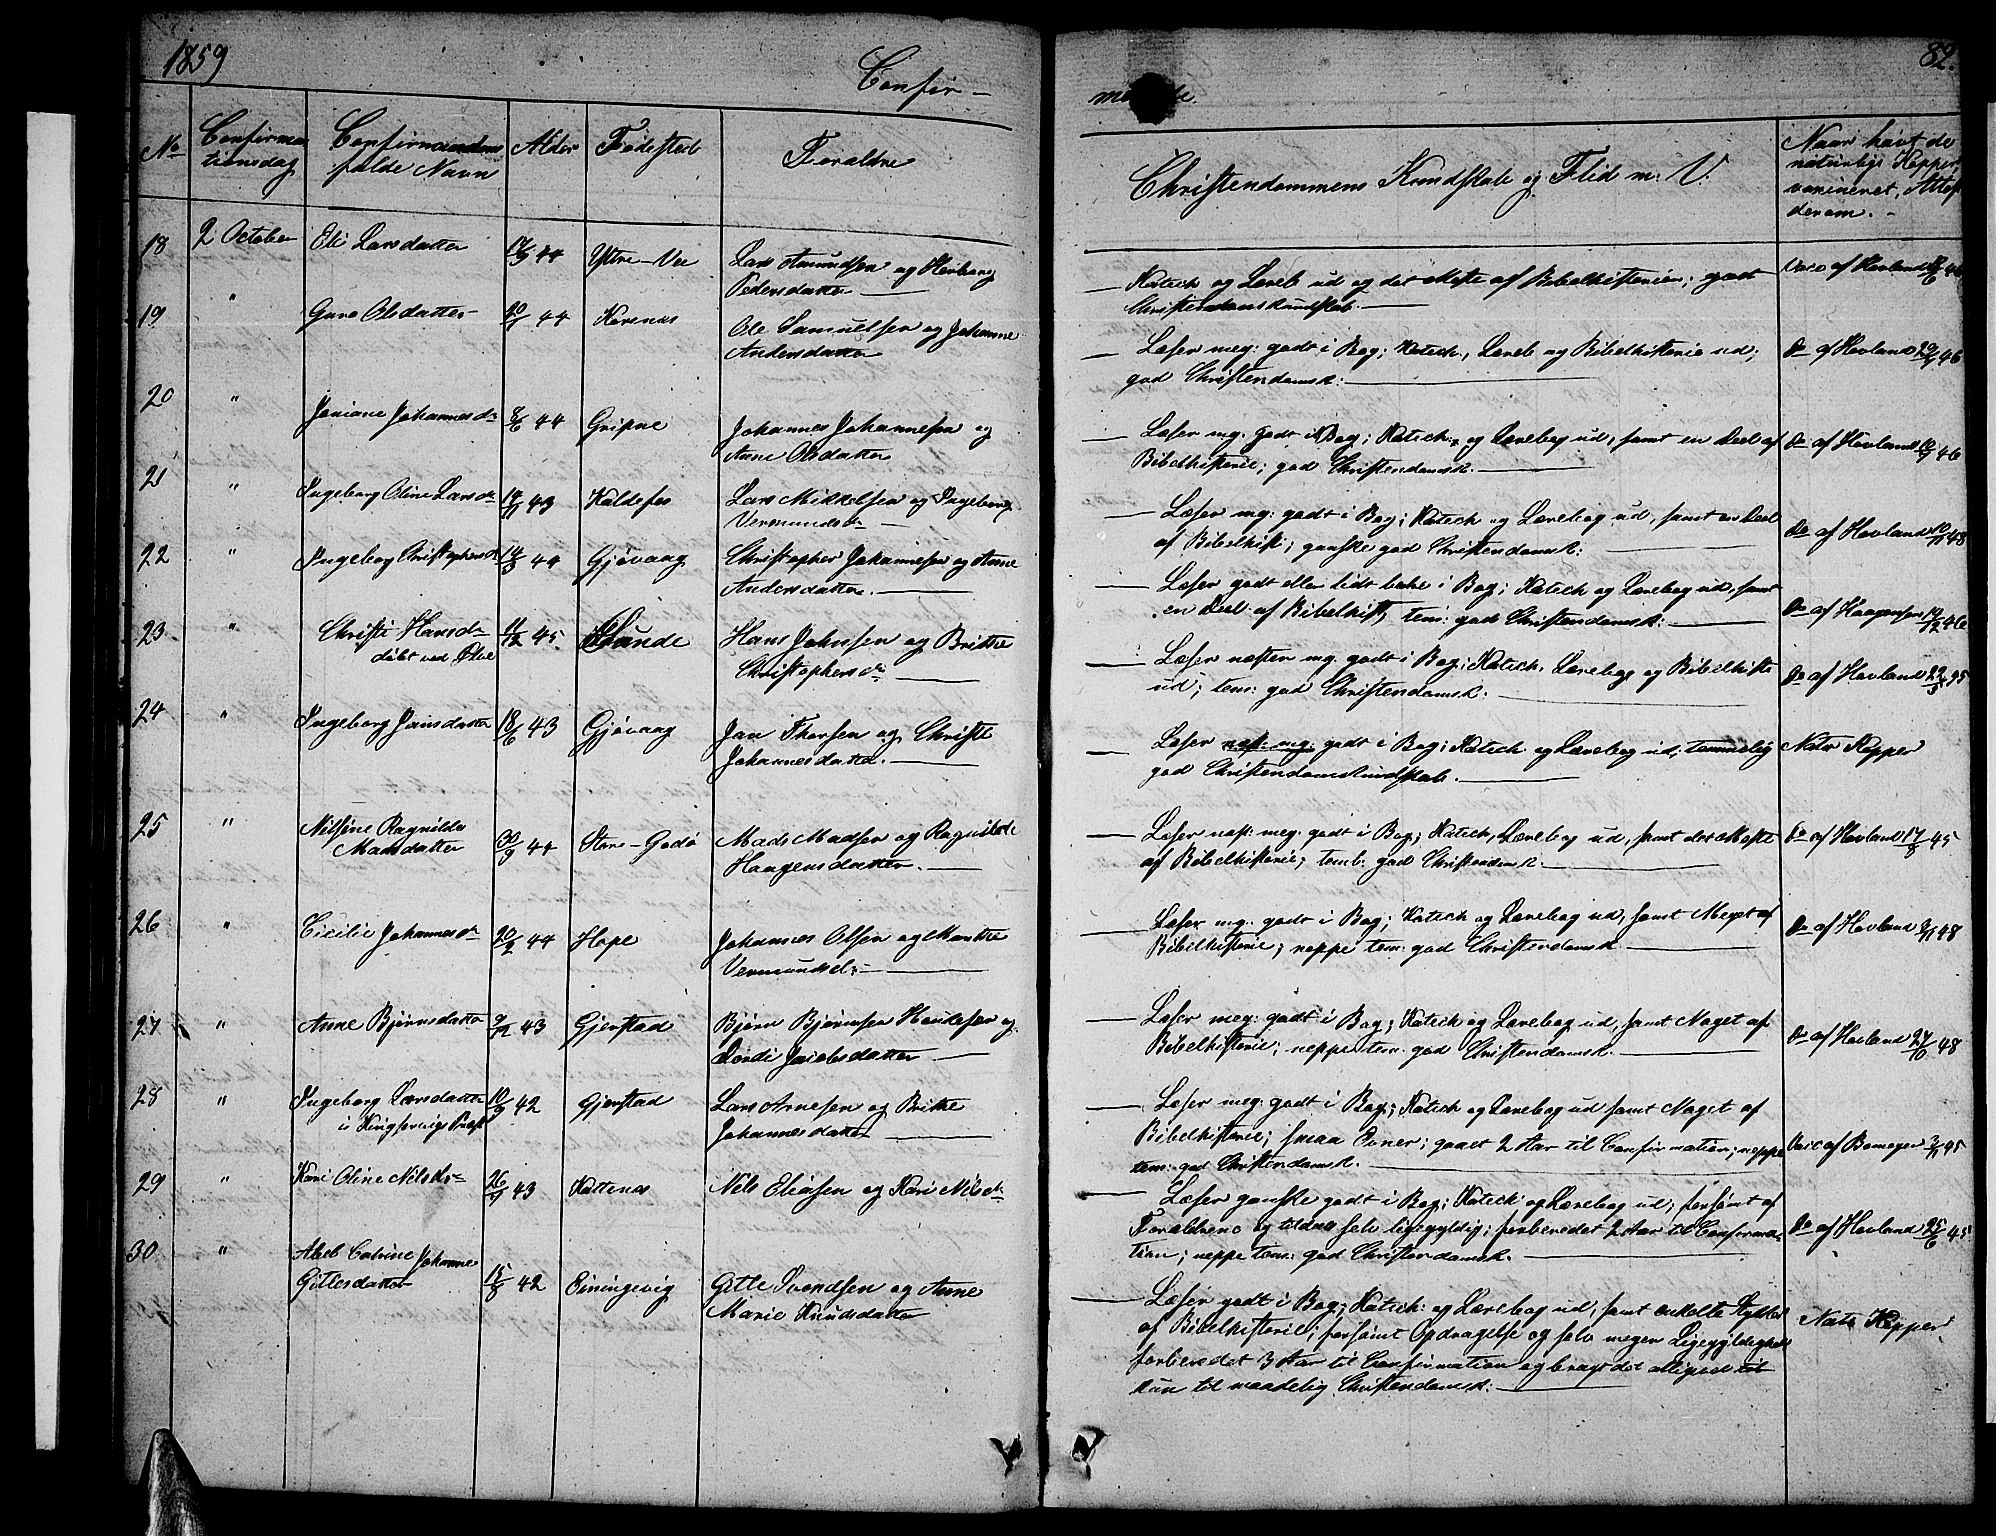 1859
82.
Confir-
No
Confirma
tionsdag
Confirmandens
fulde Navn
Alder
Fødested
Forældre
Christendommens Kundskab og Flid m: V:
Naar havt de
naturlige Kopper
vaccineret, Attest
derom. -
18 2 October Eli Larsdatter 44 Ytre-Vee Lars Amundsen og Herborg
Pedersdatter
Katech og Læreb ud og det Meste af Bibelhistorien; godt
Christendomskundskab.
Vacc af Hovland 46
19 " Guro Olsdatter 44 Ole Samuelsen og Johanne
Andersdatter
Læser meg: godt i Bog; Katech, Læreb og Bibelhistorie ud;
god Christendomsk:
Do af Hovland 46
20 " Johannesdr 8/6 44 Gripne Johannes Johannesen og
Anne Olsdatter
Læser mg: godt i Bog; Katech, og Lærebog ud, samt en Deel af
Bibelhistorie; god Christendomsk.
Do af Hovland 46
21 " Ingeborg Oline Larsdr 43 Kaldefos Lars Mikkelsen og Ingeborg
Vermundsdr
Læser mg: godt i Bog; Katech og Lærebog ud, samt en Deel
af Bibelhist; ganske god Christendomsk:
Do af Hovland 48
22 " Ingeborg Christophersdr 44 Gjøvaag Christopher Johannesen og Anne
Andersdatter.
Læser godt eller lidt bedre i Bog; Katech og Lærebog ud, samt
en Deel af Bibelhist, tem: god Christendomsk:
Do af Haagensen 46
23 " Christi Hansdr
døbt ved Ølve
11/2 45. Sunde Hans Johnsen og Brithe
Christophersdr
Læser næsten mg. godt i Bog; Katech, Lærebog og Bibelhisto
ud; tem: god Christendomsk:
Do af Hovland
24 " Ingeborg Jansdatter 18/6 43 Gjøvaag Jan Thorsen og Christi
Johannesdatter.
Læser næst: mg. godt i Bog; Katech og Lærebog ud, temmelig
god Christendomskundskab.
Natr Kopper
25 " Nilsine Ragnilda
Madsdatter
30/9 44 Store-Godø Mads Madsen og Ragnilde
Haagensdatter.
Læser næst: meg: godt i Bog; Katech, Lærebog ud, samt det Meste
af Bibelhistorie; teml: god Christendomsk.
Do af Hovland 45
26 " Cicilie Johannesdr 20/2 44 Hope Johannes Olsen og Marthe
Vermundsd:
Læser mg: godt i Bog; Katech og Lærebog ud, samt Meget af
Bibelhistorie; neppe tem: god Christendomsk.
Do af Hovland 48
27 " Anne Bjørnsdatter 43 Gjerstad Bjørn Bjørnsen og
Jacobsdatter
Læser meg: godt i Bog; Katech og Lærebog ud, samt Noget af
Bibelhistorie; neppe tem: god Christendomsk.
Do af Hovland 48
28 " Ingeborg Larsdatter
i Kingservigs Præst
10/9 42 Gjerstad Lars Arnesen og Brithe
Johannesdatter
Læser meg: godt i Bog; Katech og Lærebog ud samt Noget af
Bibelhistorie; smaa Evner; gaaet 2 Aar til Confirmation; neppe
tem: god Christendomsk.
Vacc af 45
29 " Kari Oline Nilsdr 43 Nils Eliasen og Kari Nilsdr
Læser ganske godt i Bog; Katech og Lærebog ud; forsømt af
Forældrene og tildels selv ligegyldig; forberedet 2 Aar til Confirma-
tion; neppe tem: god Christendomsk.
Do af Hovland 25/6 45
30 " Abel Catrine Johanne
Gitlesdatter
15/8 42 Einingevig Gitle Svendsen og Anne
Marie Knudsdatter
Læser godt i Bog; Katech: og Lærebog ud, samt enkelte Stykker
af Bibelhistorie; forsømt Opdragelse og selv megen Ligegyldighed
forberedet 3 Aar til Confirmation og bragt det alligevel
kun til maadelig Christendomsk:
Natr Kopper